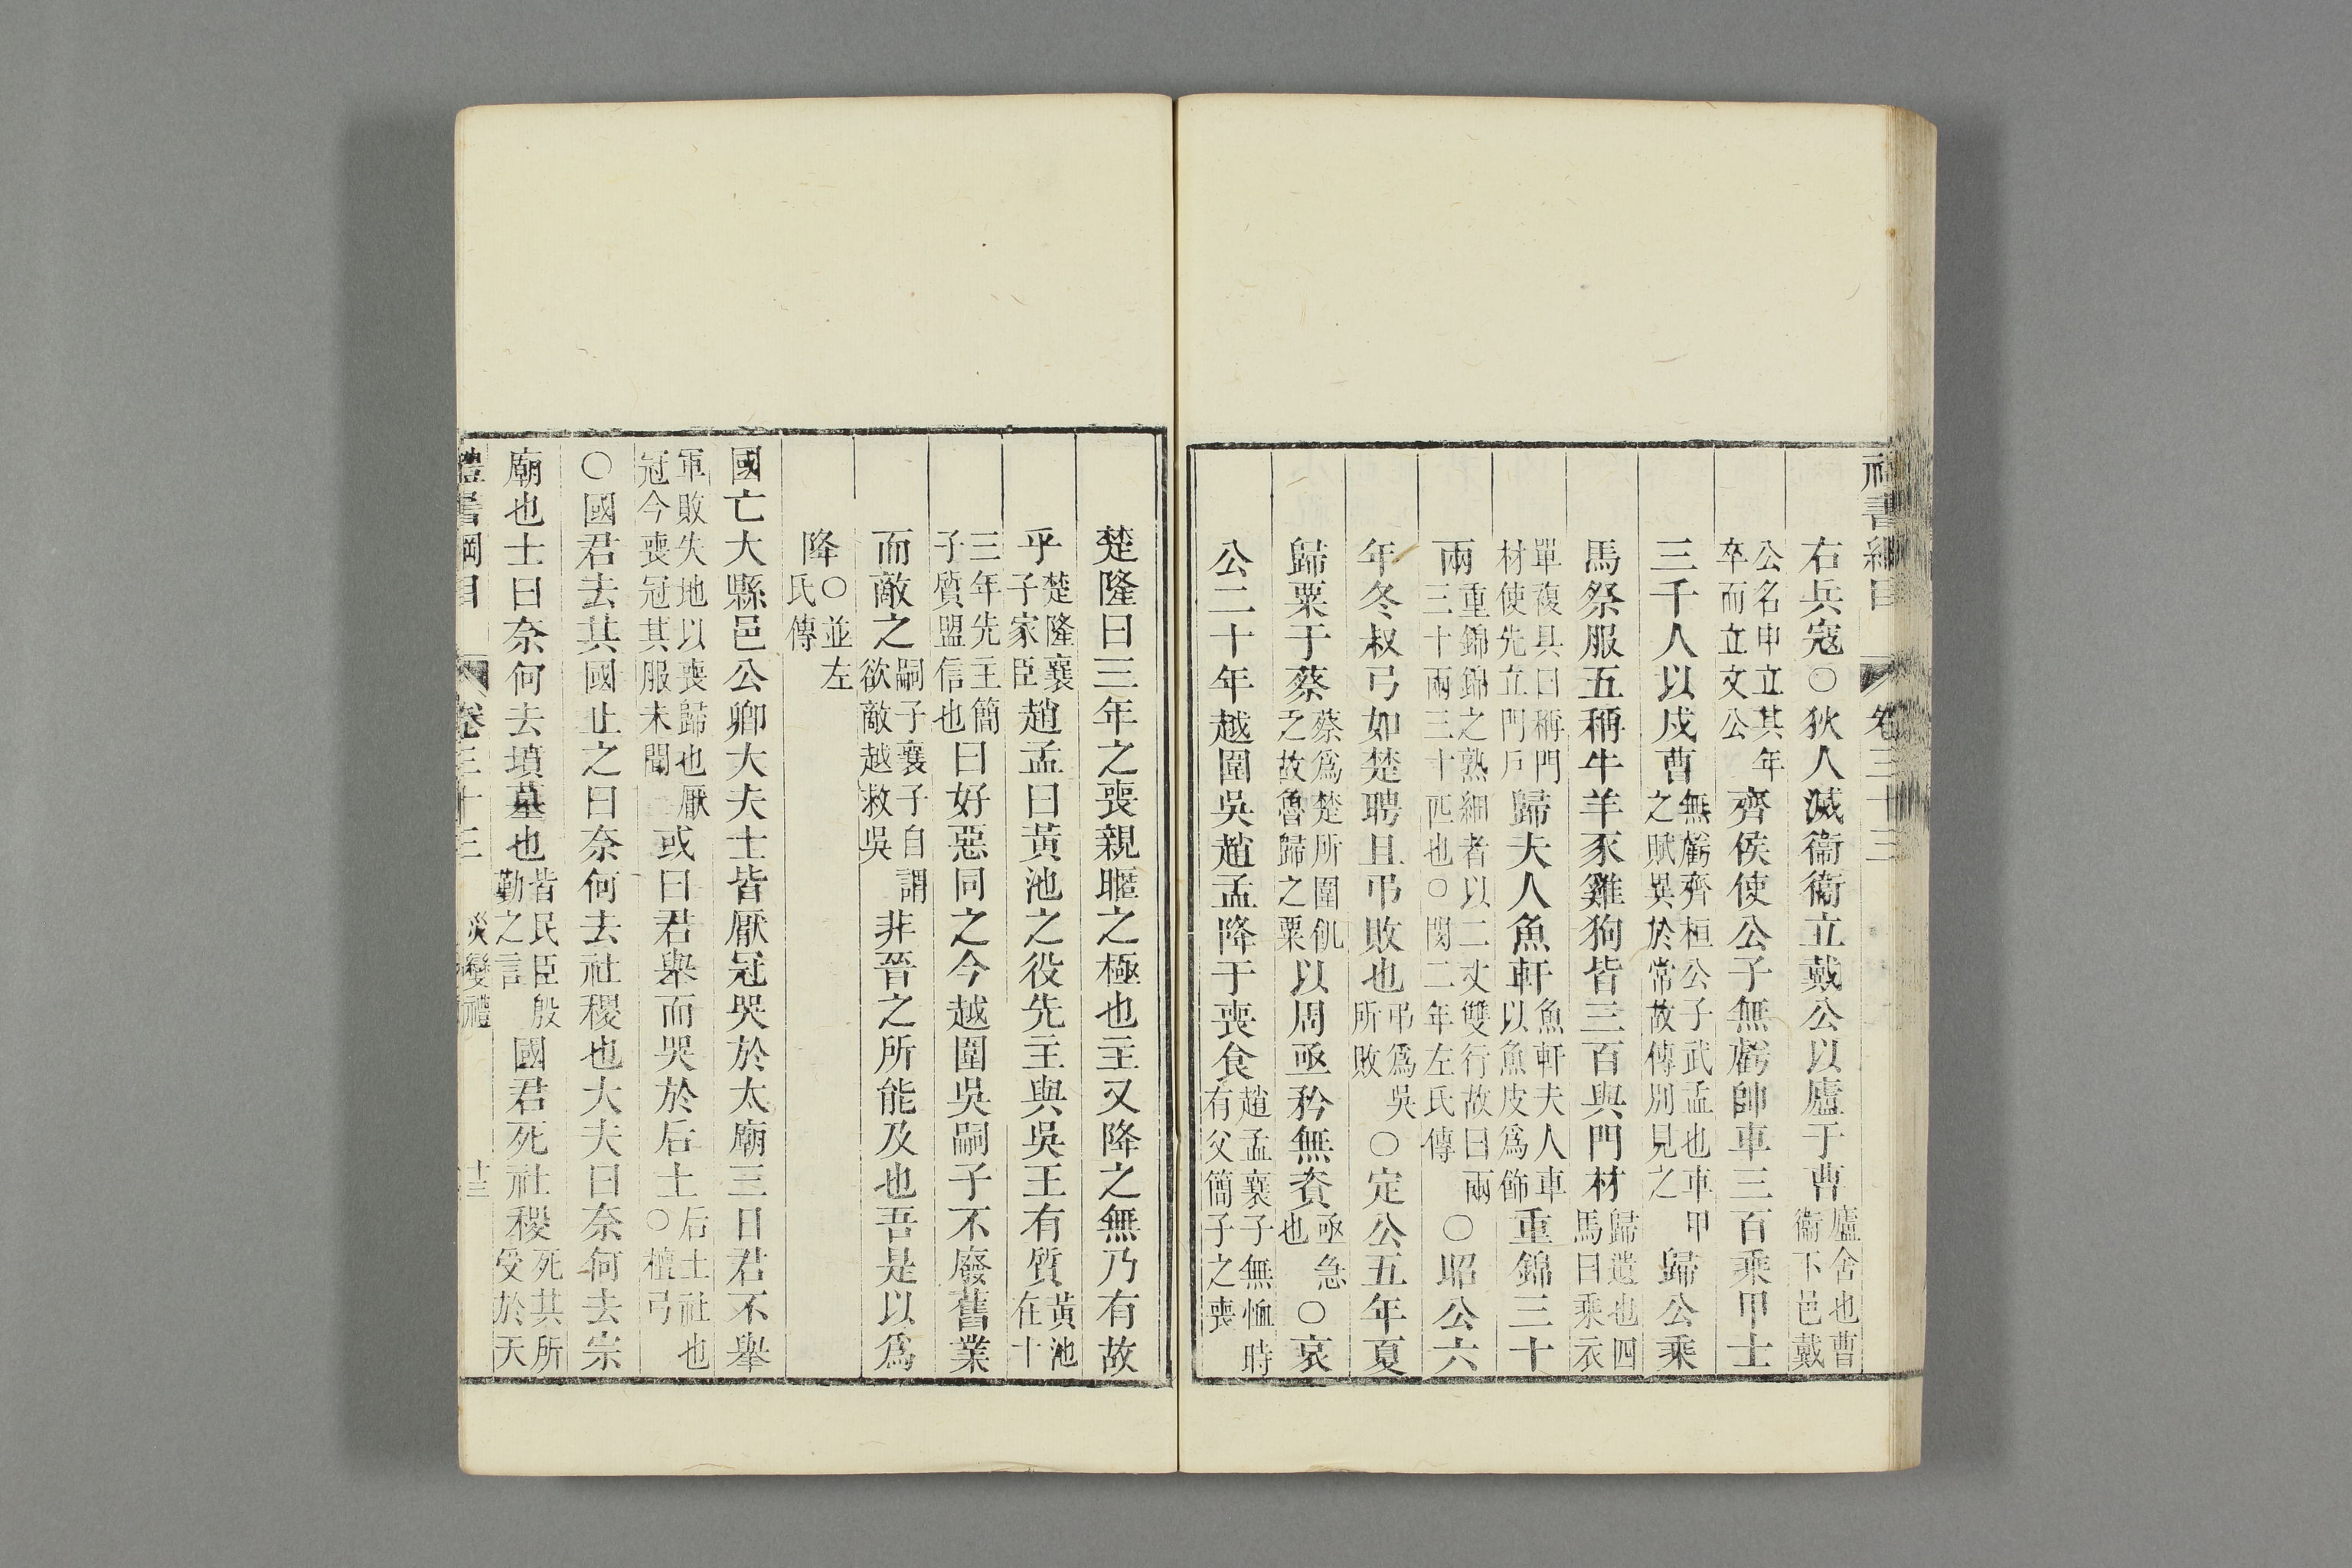 禮書綱目 卷三十三
右兵寇○狄人滅衞衞立戴公以廬于曹廬舍也曹衞下邑戴
公名申立其年卒而立文公齊侯使公子無虧帥車三百乘甲士
三千人以戍曹無虧齊桓公子武孟也車甲之賦異於常故傳別見之歸公乘
馬祭服五稱牛羊豕雞狗皆三百與門材歸遺也四馬曰乘衣
單複具曰稱門材使先立門戶歸夫人魚軒魚軒夫人車以魚皮爲飾重錦三十
兩重錦錦之熟細者以二丈雙行故曰兩三十兩三十匹也○閔二年左氏傳○昭公六
年冬叔弓如楚聘且弔敗也弔爲吳所敗○定公五年夏
歸粟于蔡蔡爲楚所圍飢乏故魯歸之粟以周亟矜無資亟急也○哀
公二十年越圍吳趙孟降于喪食趙孟襄子無恤時有父簡子之喪
楚隆曰三年之喪親暱之極也主又降之無乃有故
乎楚隆襄子家臣趙孟曰黃池之役先主與吳王有質黃池在十
三年先主簡子質盟信也曰好惡同之今越圍吳嗣子不廢舊業
而敵之嗣子襄子自謂欲敵越救吳非晉之所能及也吾是以爲
降○並左氏傳
國亡大縣邑公卿大夫士皆厭冠哭於太廟三日君不舉
軍敗失地以喪歸也厭冠今喪冠其服未聞或曰君舉而哭於后土后土社也○檀弓
○國君去其國止之曰奈何去社稷也大夫曰奈何去宗
廟也士曰奈何去墳墓也皆民臣殷勤之言國君死社稷死其所受於天
禮書綱目 卷三十三 災變禮 十三